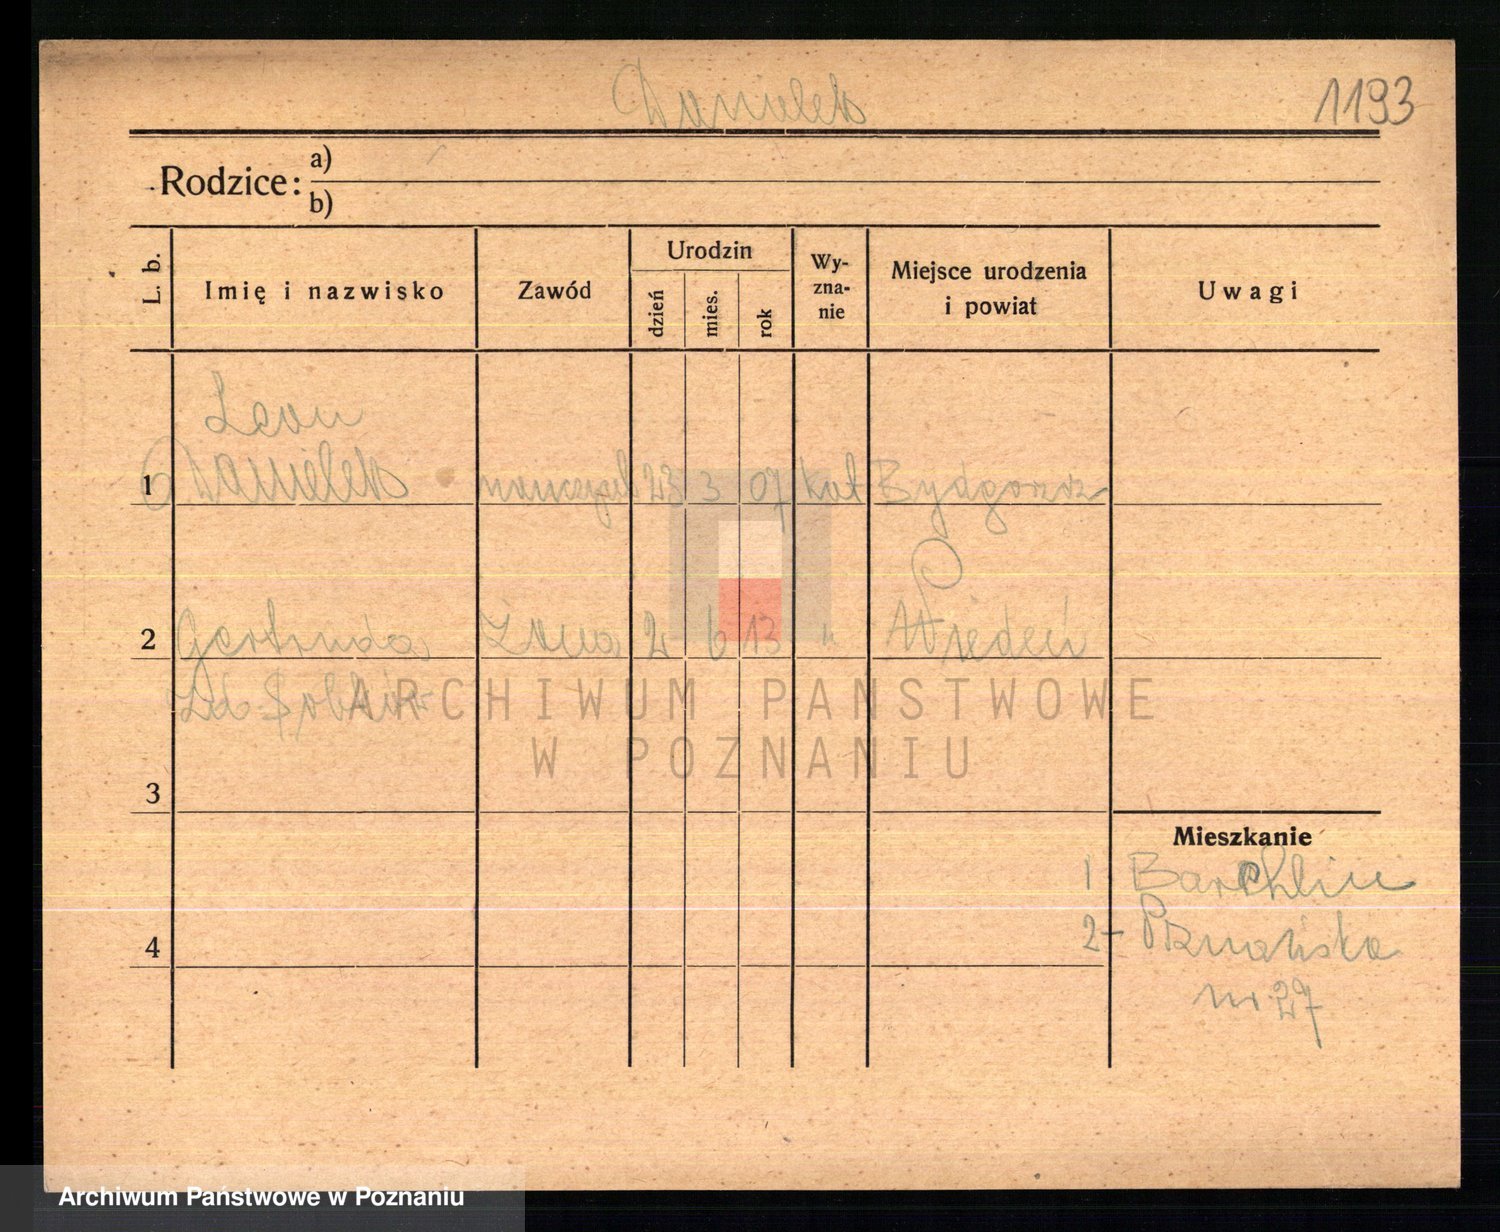 Danielek 1193
Rodzice: a)
b)
L. b. Imię i nazwisko Zawód Urodzin dzień mies. rok Wy-zna-nie Miejsce urodzenia i powiat Uwagi
Leon
1 Danielek nauczyciel 23 3 07 kat Bydgoszcz
2 Gertruda Żona 2 6 13 " Wiedeń
ARCHIWUM PAŃSTWOWE
W POZNANIU
3
Mieszkanie
1 Barchlin
4 2- Poznańska
nr 27
Archiwum Państwowe w Poznaniu